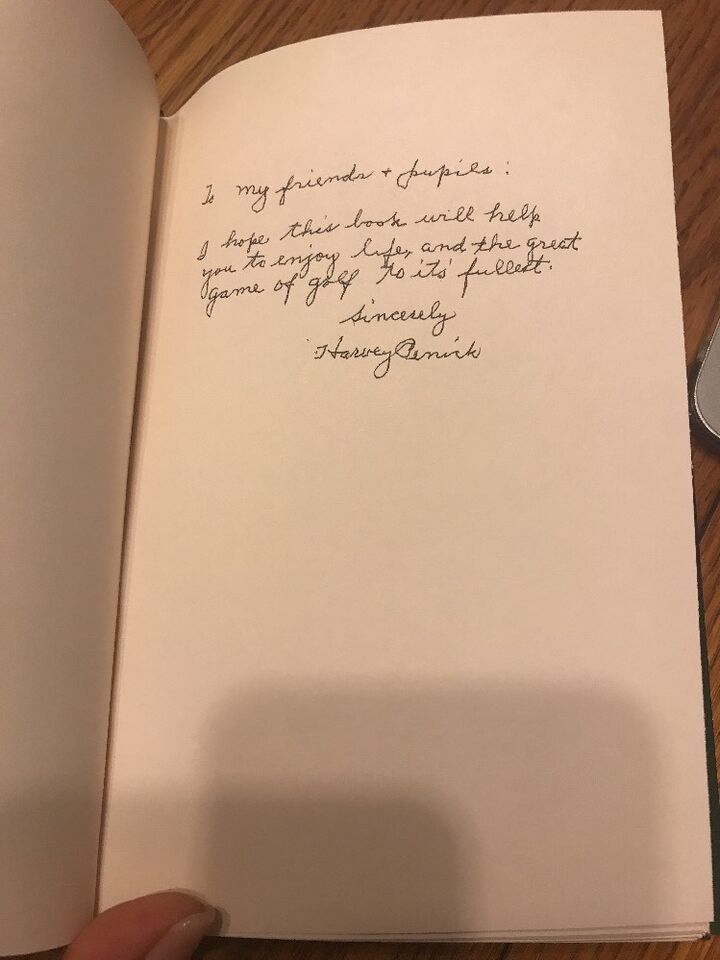 To my friends + pupils:
I hope this book will help
you to enjoy life, and the great
game of golf to it's fullest.
Sincerely
Harvey Penick